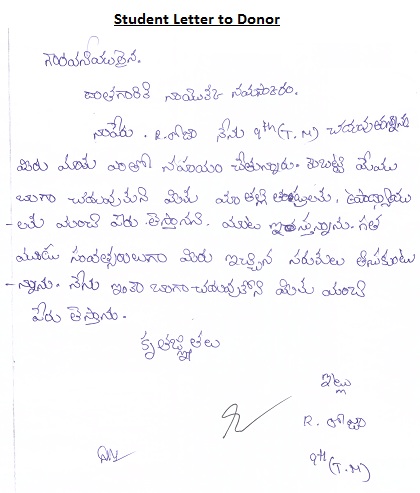 Student Letter to Donor
గౌరవనీయులైన,
దాతగారికి నాయొక్క నమస్కారం.
నాపేరు. R. రోజా నేను 9th (T.M) చదువుతున్నాను
మీరు మాకు ఎంతో సహాయం చేస్తున్నారు. కాబట్టి మేము
బాగా చదువుకుని మీకు మా తల్లి తండ్రులకు, ఉపాధ్యాయు
-లకు మంచి పేరు తెస్తానని మాట ఇస్తున్నాను. గత
మూడు సంవత్సరాలుగా మీరు ఇచ్చిన సరుకులు తీసుకుంటు
-న్నాను. నేను ఇంకా బాగా చదువుకొని మీకు మంచి
పేరు తెస్తాను.
కృతజ్ఞతలు
ఇట్లు
R. రోజా
9th (T.M)